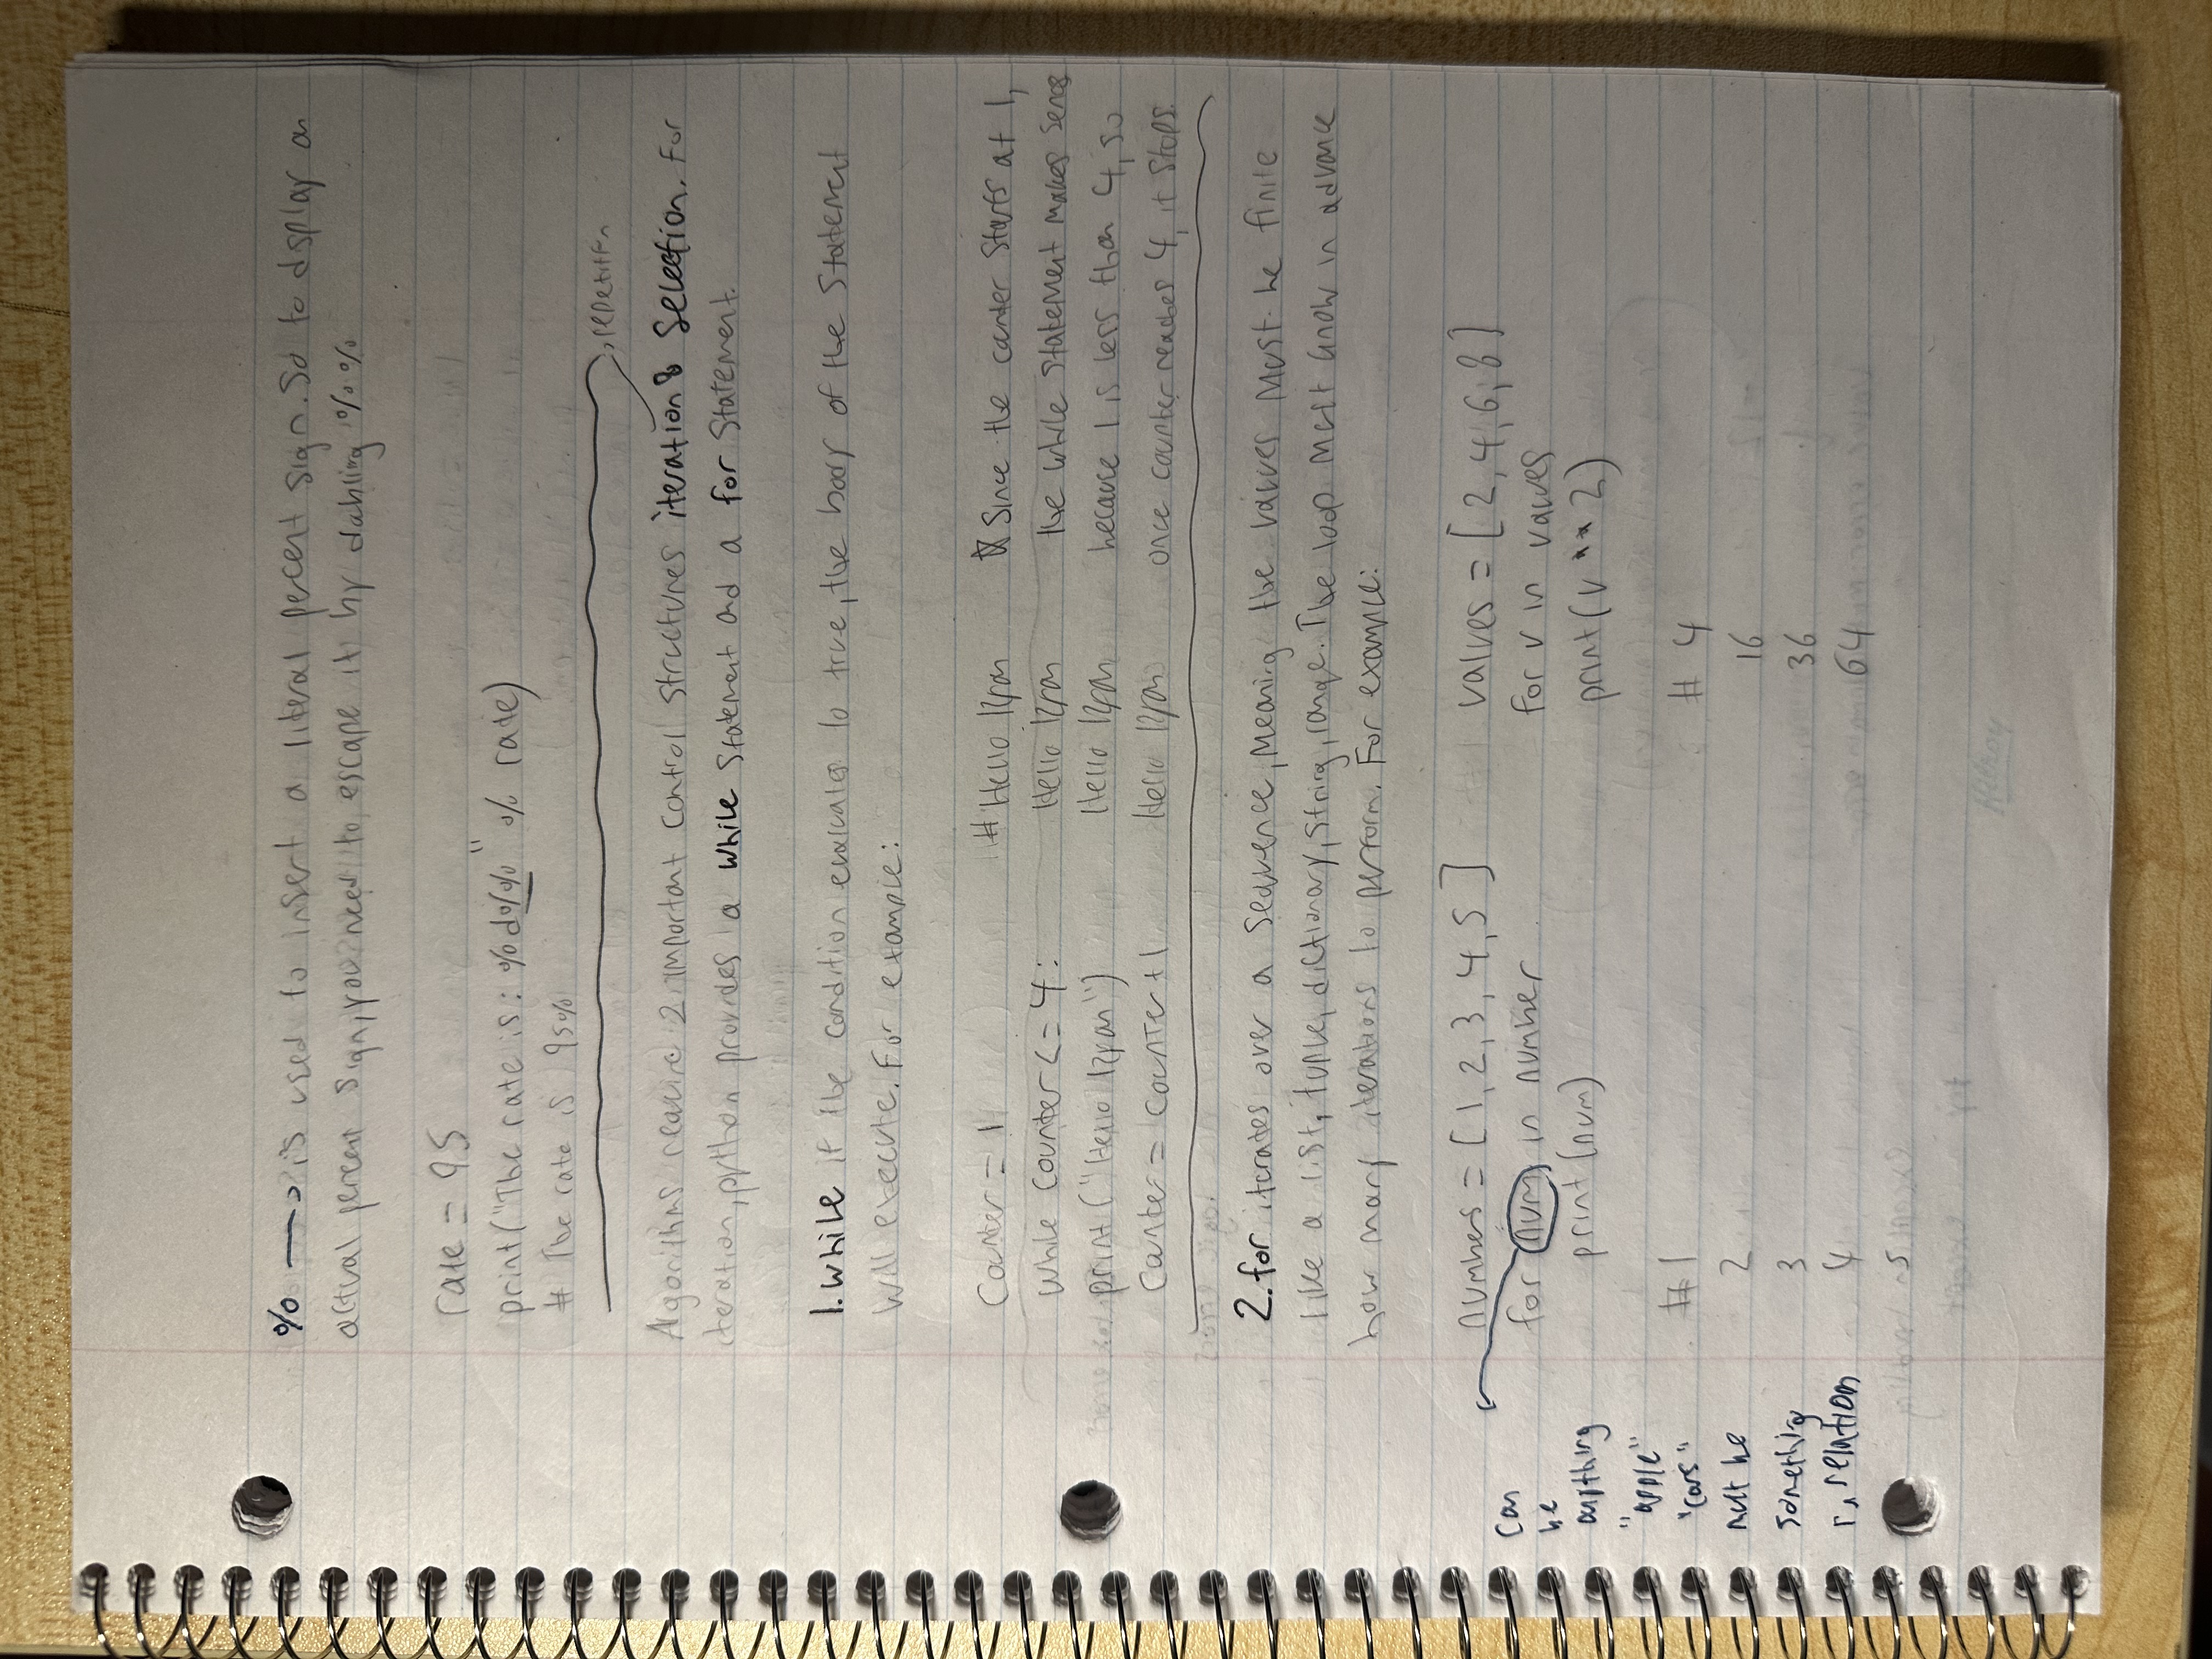 % → is used to insert a literal percent sign. So to display an
actual percent sign, you need to escape it by dahling %%
rate = 95
print("The rate is: %d%%" % rate)
# The rate is 95%
→ repetition
Algorithms require 2 important control structures iteration & Selection. For
iteration, python provides a while statement and a for statement.
1. while if the condition evaluates to true, the body of the statement
will execute. For example:
Counter = 1
while counter <= 4:
print ("Hello Ryan")
Counter = counter + 1
# Hello Ryan
Hello Ryan
Hello Ryan
Hello Ryan
☆ Since the counter starts at 1,
the while statement makes sense
because 1 is less than 4, so
once counter reaches 4, it stops.
2. for iterates over a sequence, meaning the values must be finite
like a list, tuple, dictionary, string, range. The loop must know in advance
how many iterations to perform. For example:
numbers = [1, 2, 3, 4, 5]
for num in number
print(num)
# 1
2
3
4
5
can
be
anything
"apple"
"cars"
must be
something
in relation
values = [2, 4, 6, 8]
for v in values
print(v ** 2)
# 4
16
36
64
Hilroy